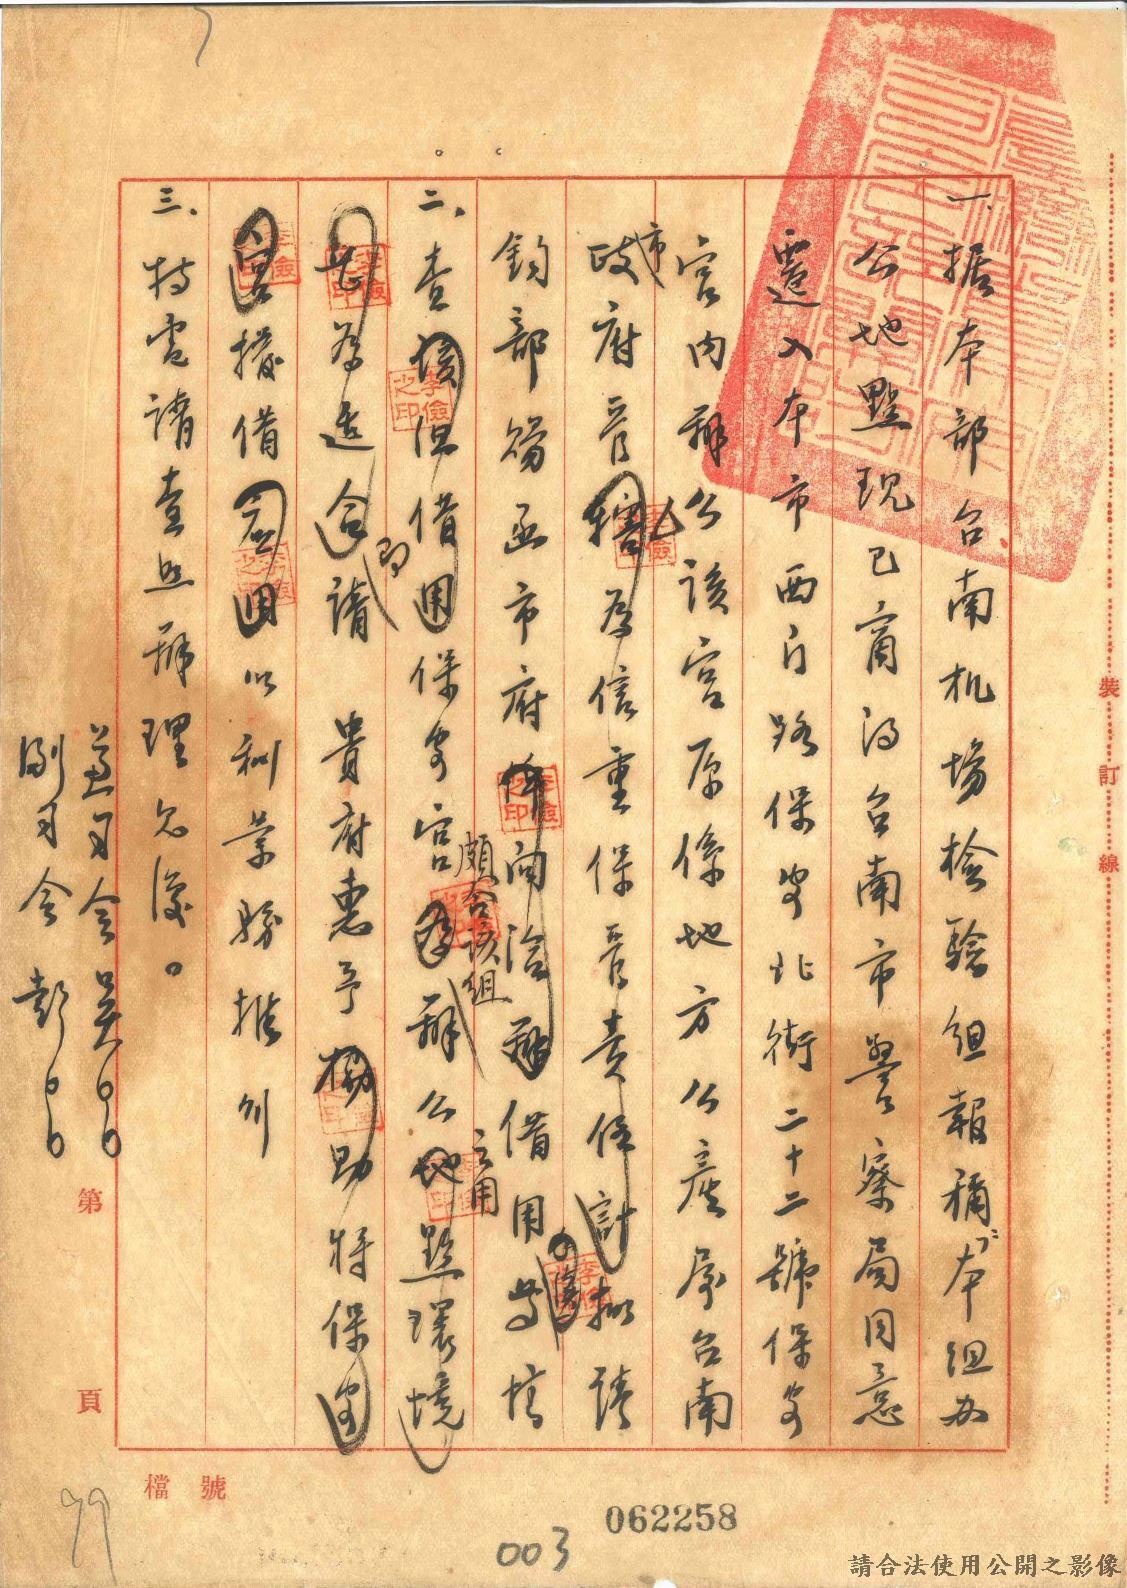 一、據本部台南机場檢驗組報稱「本組办
公地點現已商得台南市警察局同意
遷入本市西门路保安北街二十二號保安
宮內辦公該宮原係地方公產屬台南
市
政府管轄為信重保管責任計擬請
鈞部賜函市府
洽辦借用
二、查該
借用保安宮
頗合該組
辦公
之用
地點環境
為適合
即
請 貴府惠予協助將保安
宮撥借
以利業務推行
三、特電請查照辦理見復。
兼司令吳○○
副司令彭○○
裝
訂
線
第
頁
檔 號
062258
003
99
請合法使用公開之影像